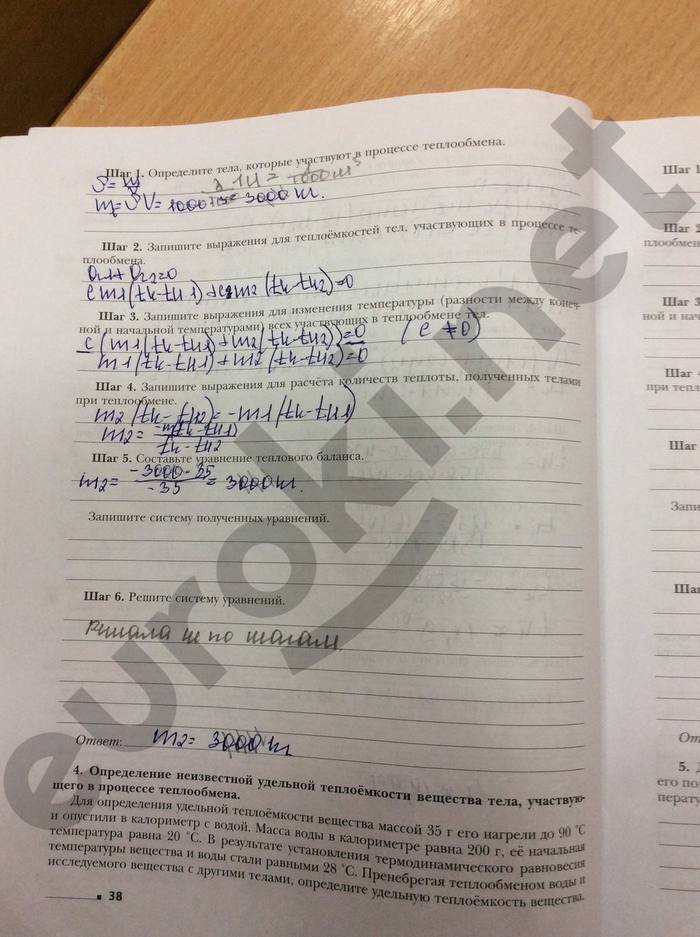 Шаг 1. Определите тела, которые участвуют в процессе теплообмена.
m=ρV= 3000 кг.
Шаг 2. Запишите выражения для теплоёмкостей тел, участвующих в процессе те-
плообмена.
Q1+Q2=0
cm1(tк-tн1)+cm2(tк-tн2)=0
Шаг 3. Запишите выражения для изменения температуры (разности между конеч-
ной и начальной температурами) всех участвующих в теплообмене тел.
c(m1(tк-tн1)+m2(tк-tн2))=0 (c ≠0)
m1(tк-tн1)+m2(tк-tн2)=0
Шаг 4. Запишите выражения для расчёта количеств теплоты, полученных телами
при теплообмене.
m2(tк-tн2)=-m1(tк-tн1)
m2= -m1(tк-tн1)
tк-tн2
Шаг 5. Составьте уравнение теплового баланса.
m2= -3000·35 = 3000кг.
-35
Запишите систему полученных уравнений.
Шаг 6. Решите систему уравнений.
Решала не по шагам.
Ответ: m2= 3000 кг
4. Определение неизвестной удельной теплоёмкости вещества тела, участвую-
щего в процессе теплообмена.
Для определения удельной теплоёмкости вещества массой 35 г его нагрели до 90 °С
и опустили в калориметр с водой. Масса воды в калориметре равна 200 г, её начальная
температура равна 20 °С. В результате установления термодинамического равновесия
температуры вещества и воды стали равными 28 °С. Пренебрегая теплообменом воды и
исследуемого вещества с другими телами, определите удельную теплоёмкость вещества.
38
Шаг 1
Шаг 2
плообмен
Шаг 3
ной и нач
Шаг
при тепл
Шаг
Запи
Шаг
От
5.
его по
перату
euroki.net